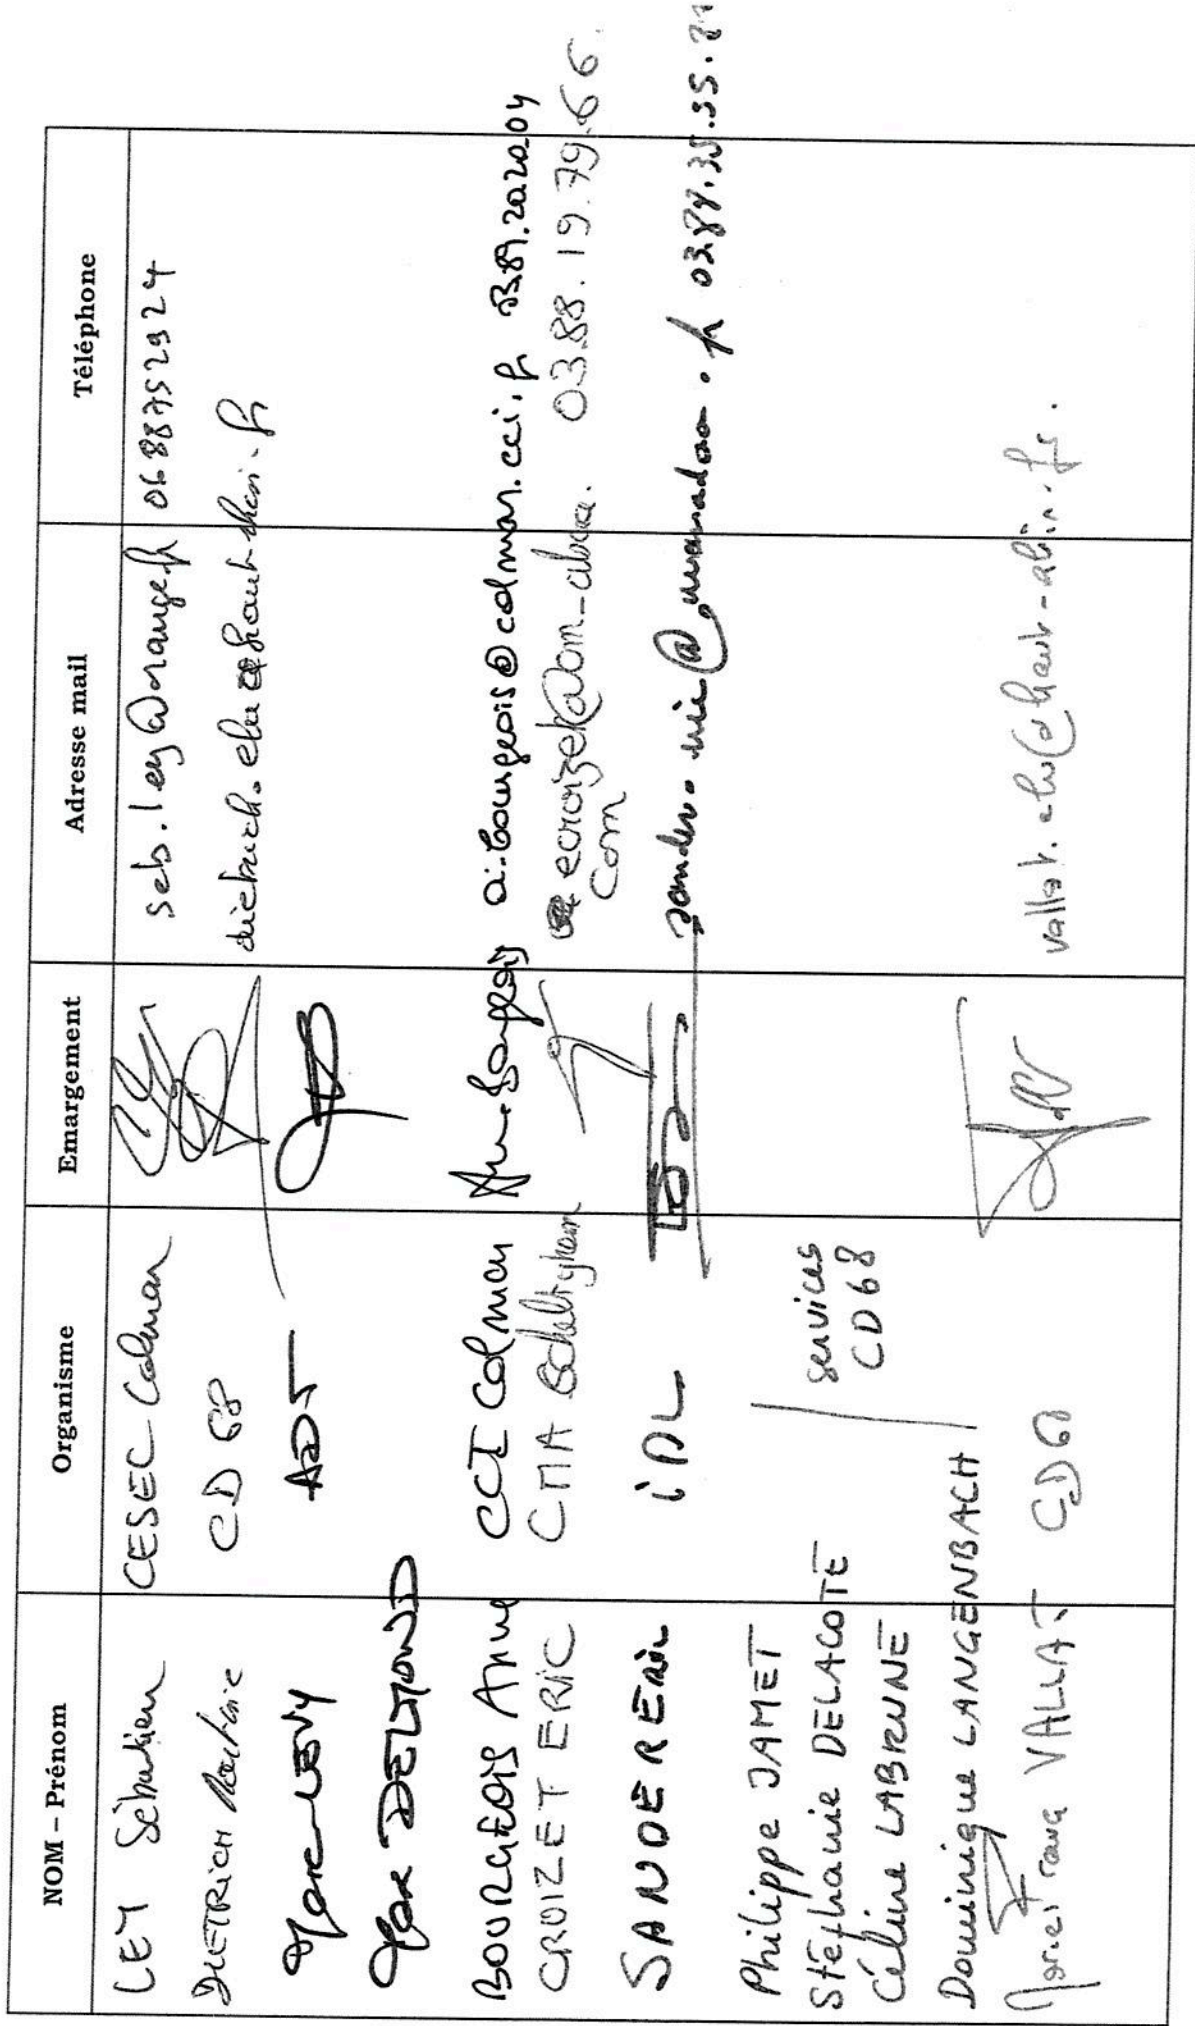 NOM – Prénom Organisme Emargement Adresse mail Téléphone
LEY Sébastien CESEC Colmar seb.ley@orange.fr 0688752924
DIETRICH Martine CD 68 dietrich.elu@haut-rhin.fr
Marc LEVY ADT
Max DELMOND
BOURGEOIS Anne CCI Colmar a.bourgeois@colmar.cci.fr 03.89.202004
CROIZET ERIC CMA Schiltigheim ecroizet@cm-alsace. 03.88.19.79.66.
com
SANDER Eric IDL
Philippe JAMET
Stéphanie DELACOTE services
Céline LABRUNE CD68
Dominique LANGENBACH
VALLAT CD68 vallat.elu@haut-rhin.fr.